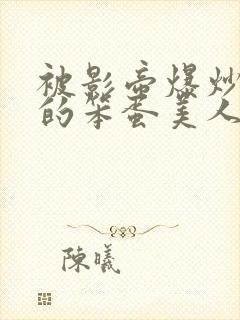 被影帝爆炒
的笨蛋美人
陳曦